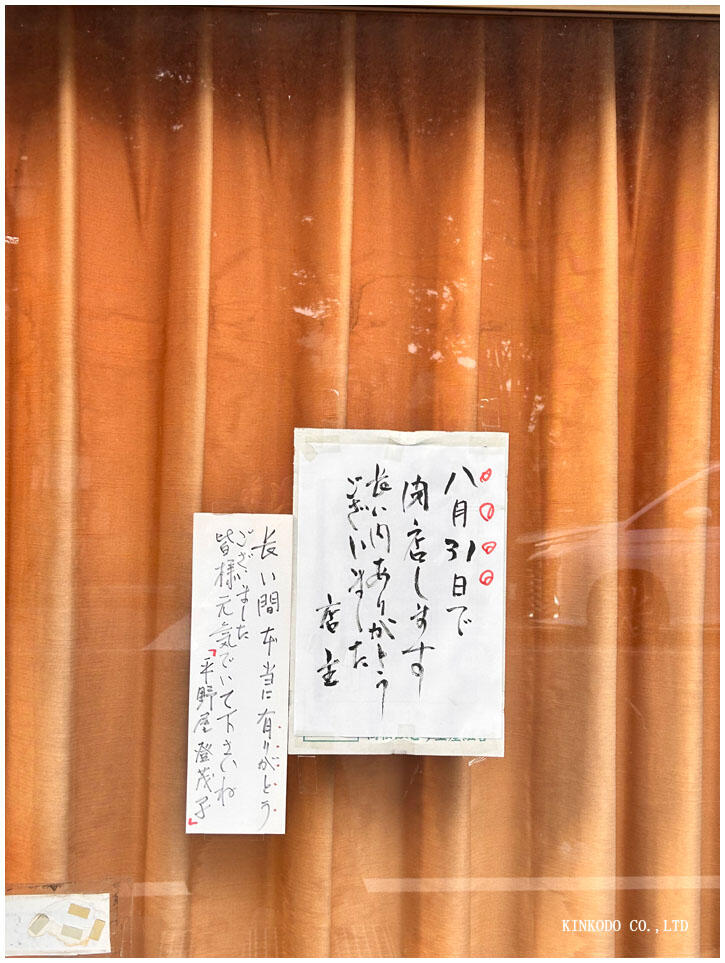 八月31日で
閉店します
長い内ありがとう
ございました
店主
長い間本当に有りがとう
ございました
皆様元気でいて下さいね
「平野屋 登茂子」
KINKODO CO.,LTD